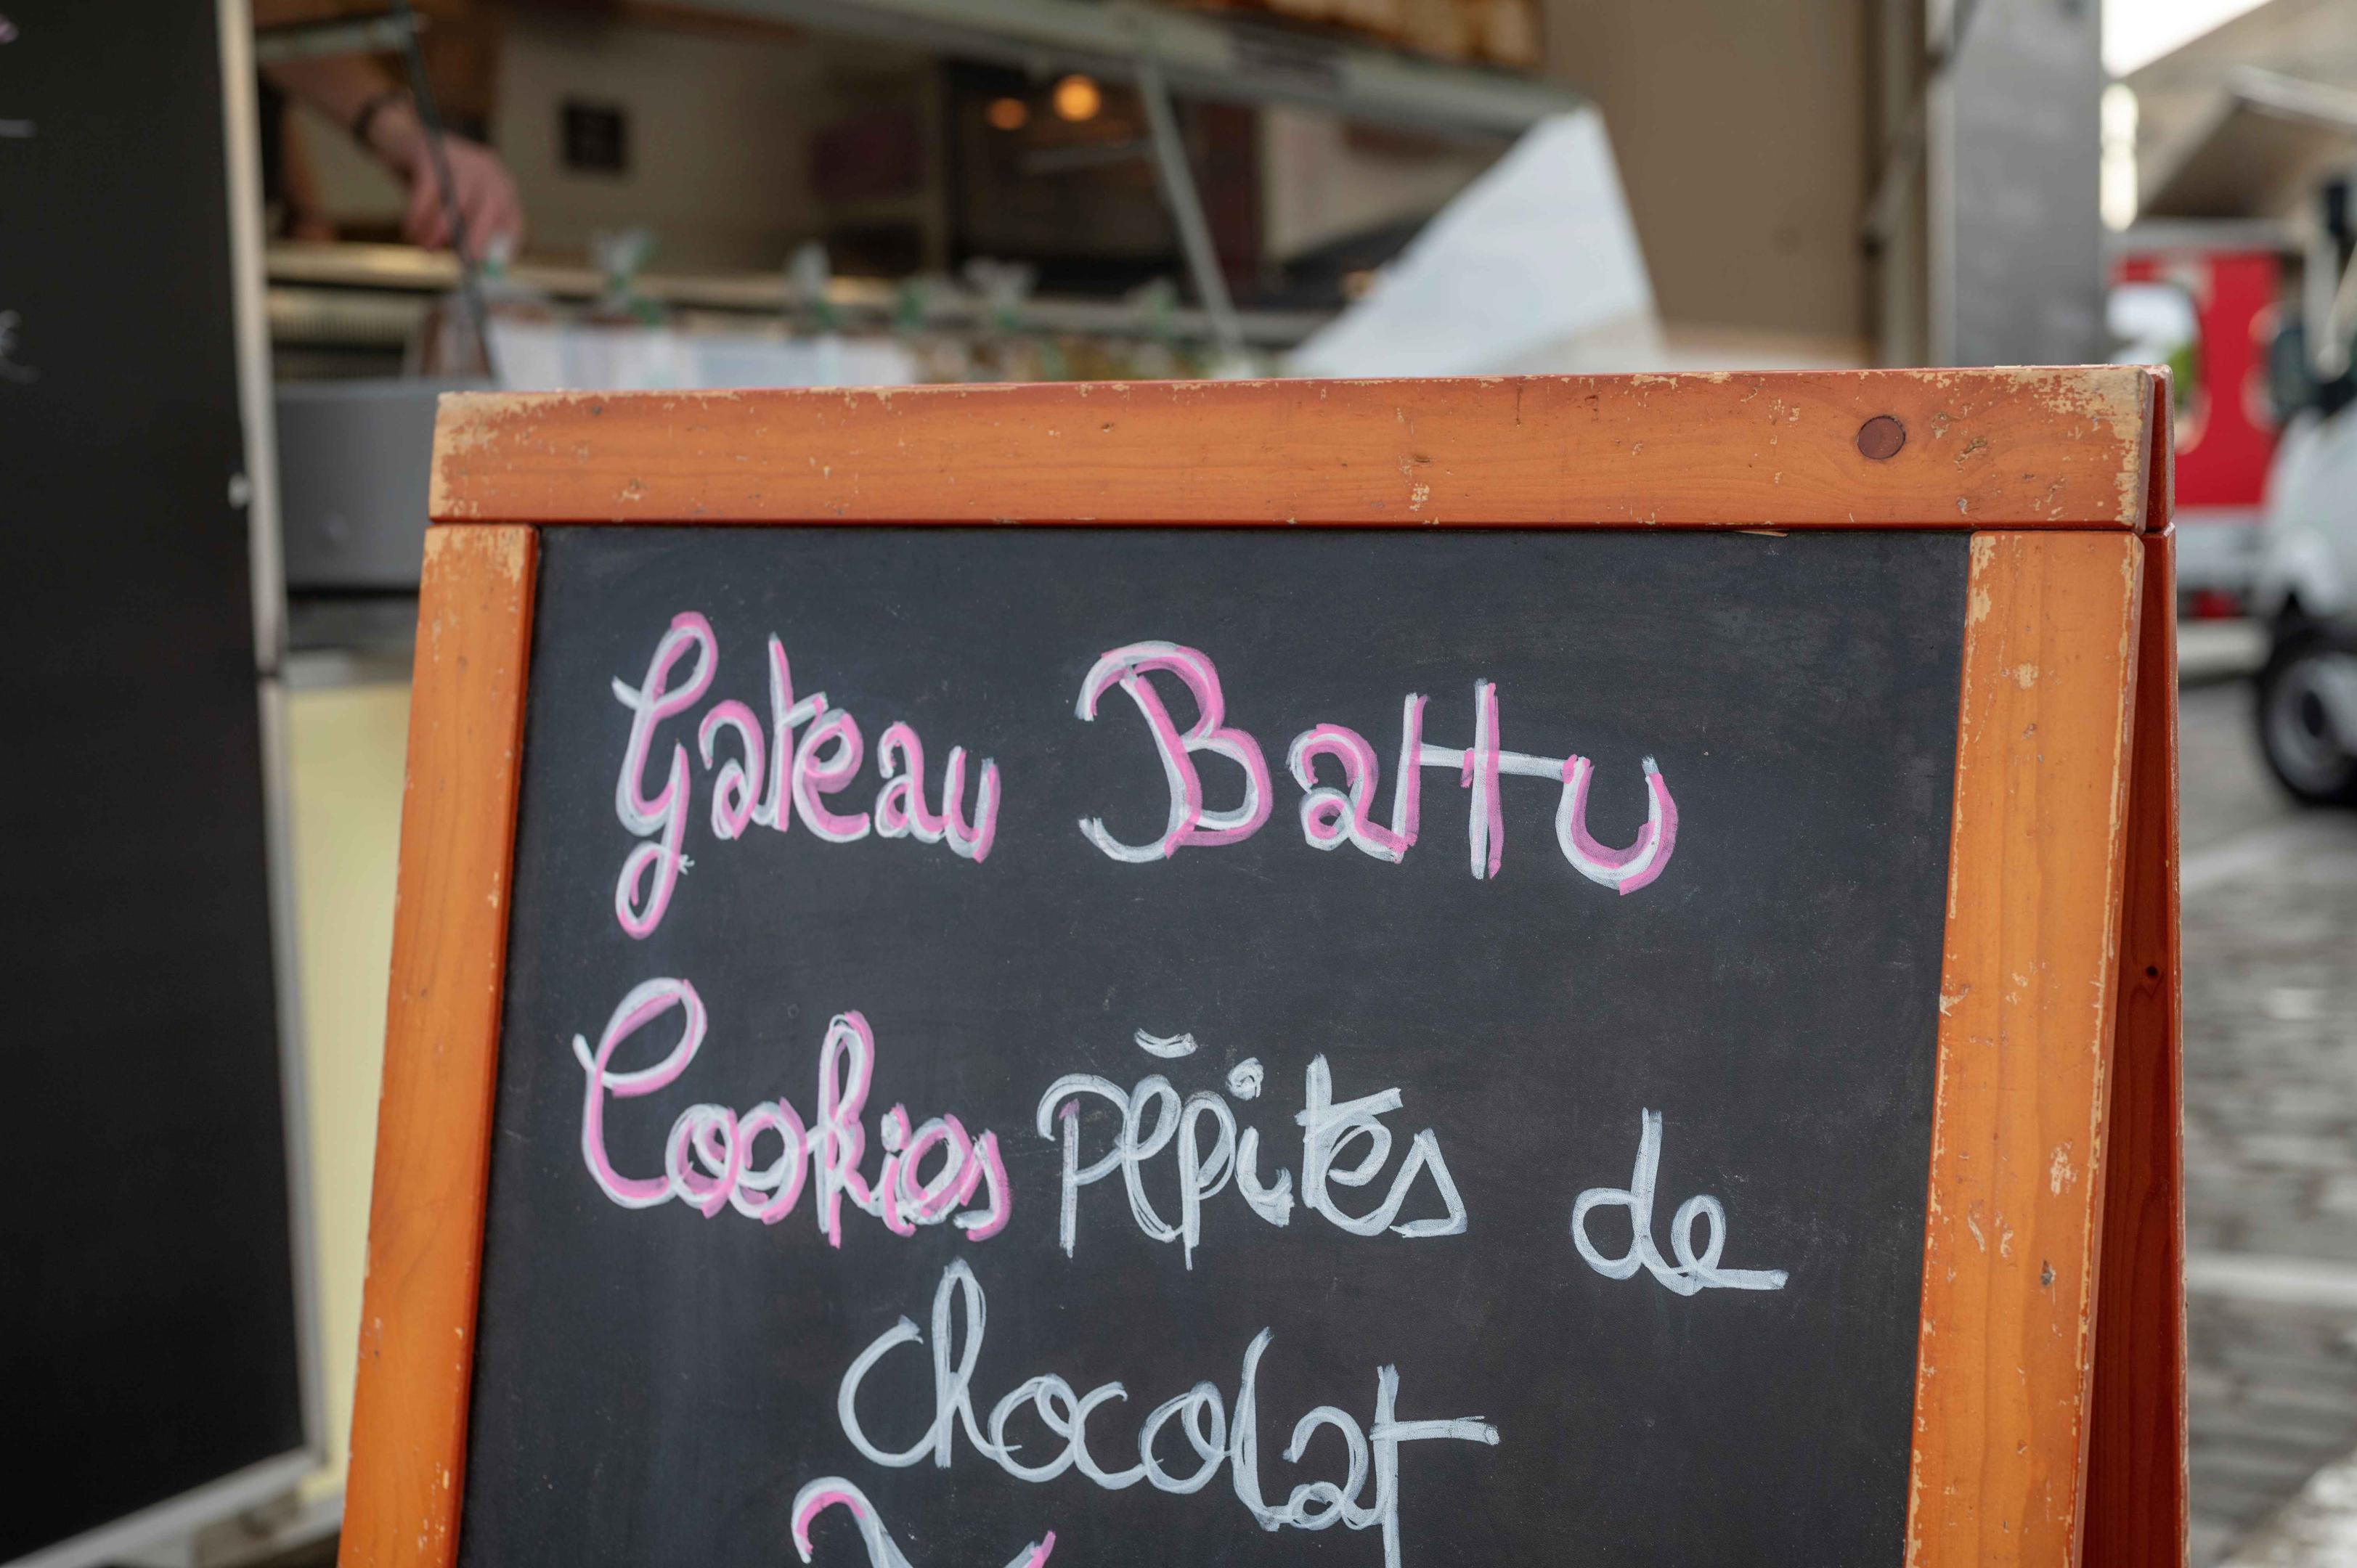 Gateau Battu
Cookies pépites de
chocolat